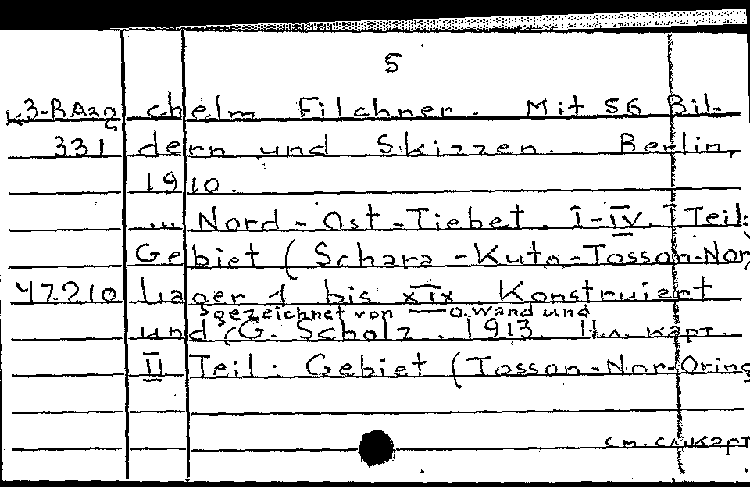 5
chelm Filchner. Mit 56 Bil-
331 dern und Skizzen. Berlin,
1910.
... Nord-Ost-Tiebet. I-IV. I Teil:
Gebiet (Schara-Kuto-Tosson-Nor,
47210 Lager 1 bis XIX. Konstruiert
gezeichnet von — O. Wand und
und G. Scholz. 1913.
II Teil: Gebiet (Tosson-Nor-Oring